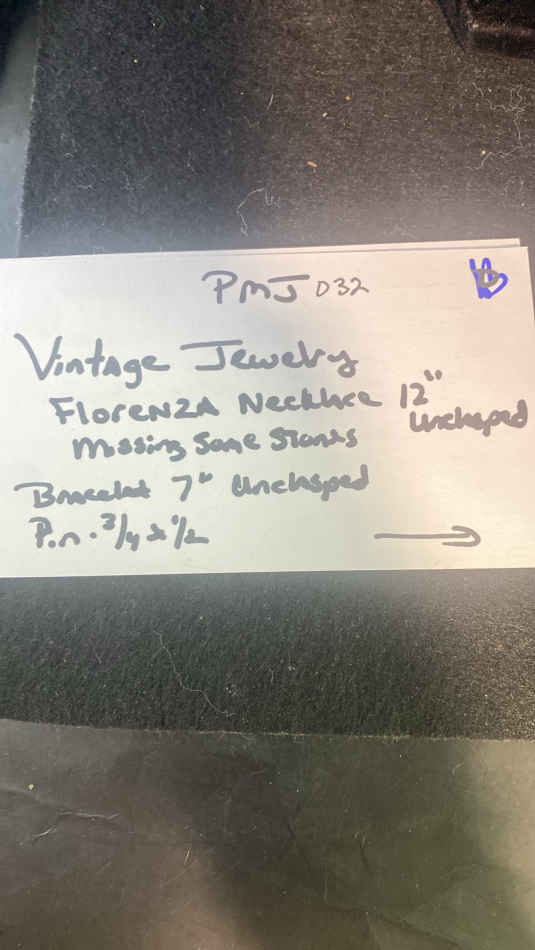 PMJ 032
Vintage Jewelry
Florenza Necklace 12" unclasped
missing some stones
Bracelet 7" unclasped
Pin. 3/4 x 1/2